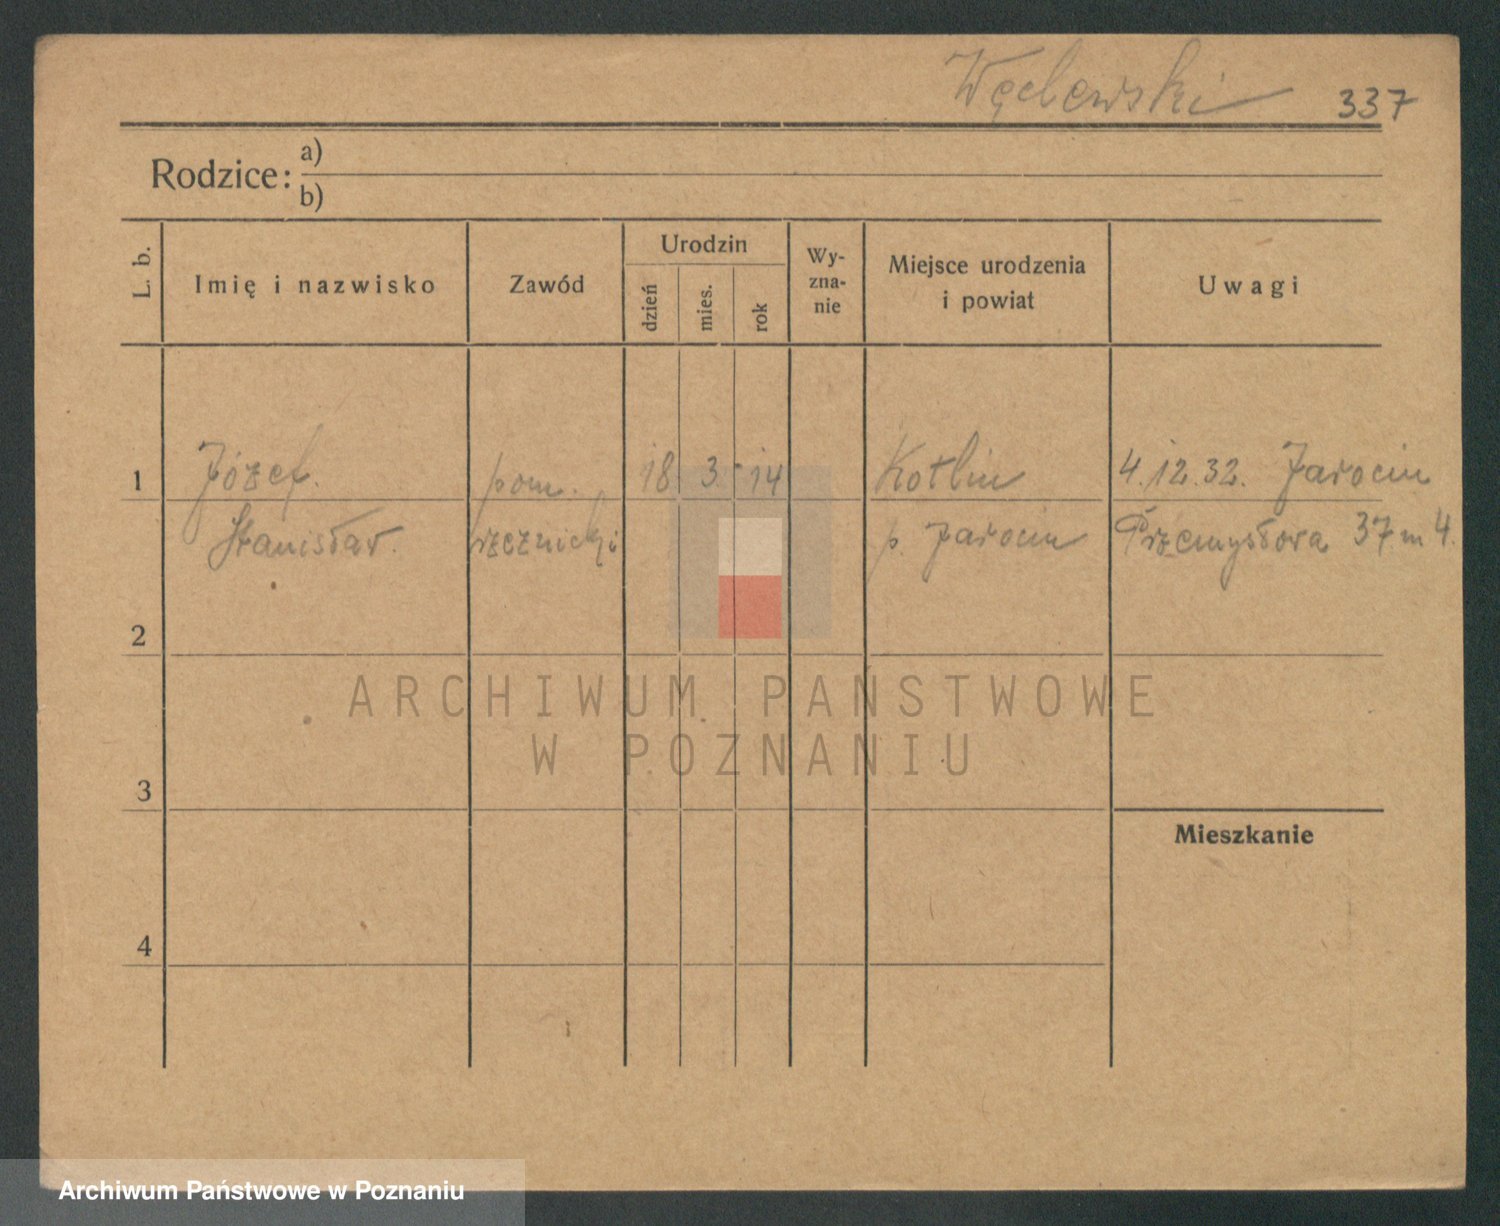 Węclewski 337
Rodzice: a)
b)
L. b. Imię i nazwisko Zawód Urodzin dzień mies. rok Wy-zna-nie Miejsce urodzenia i powiat Uwagi
1 Józef pom. 18 3 14 Kotlin 4.12.32. Jarocin
Stanisław. rzeźnicki p. Jarocin Przemysłowa 37 m 4.
2
ARCHIWUM PAŃSTWOWE
W POZNANIU
3
Mieszkanie
4
Archiwum Państwowe w Poznaniu